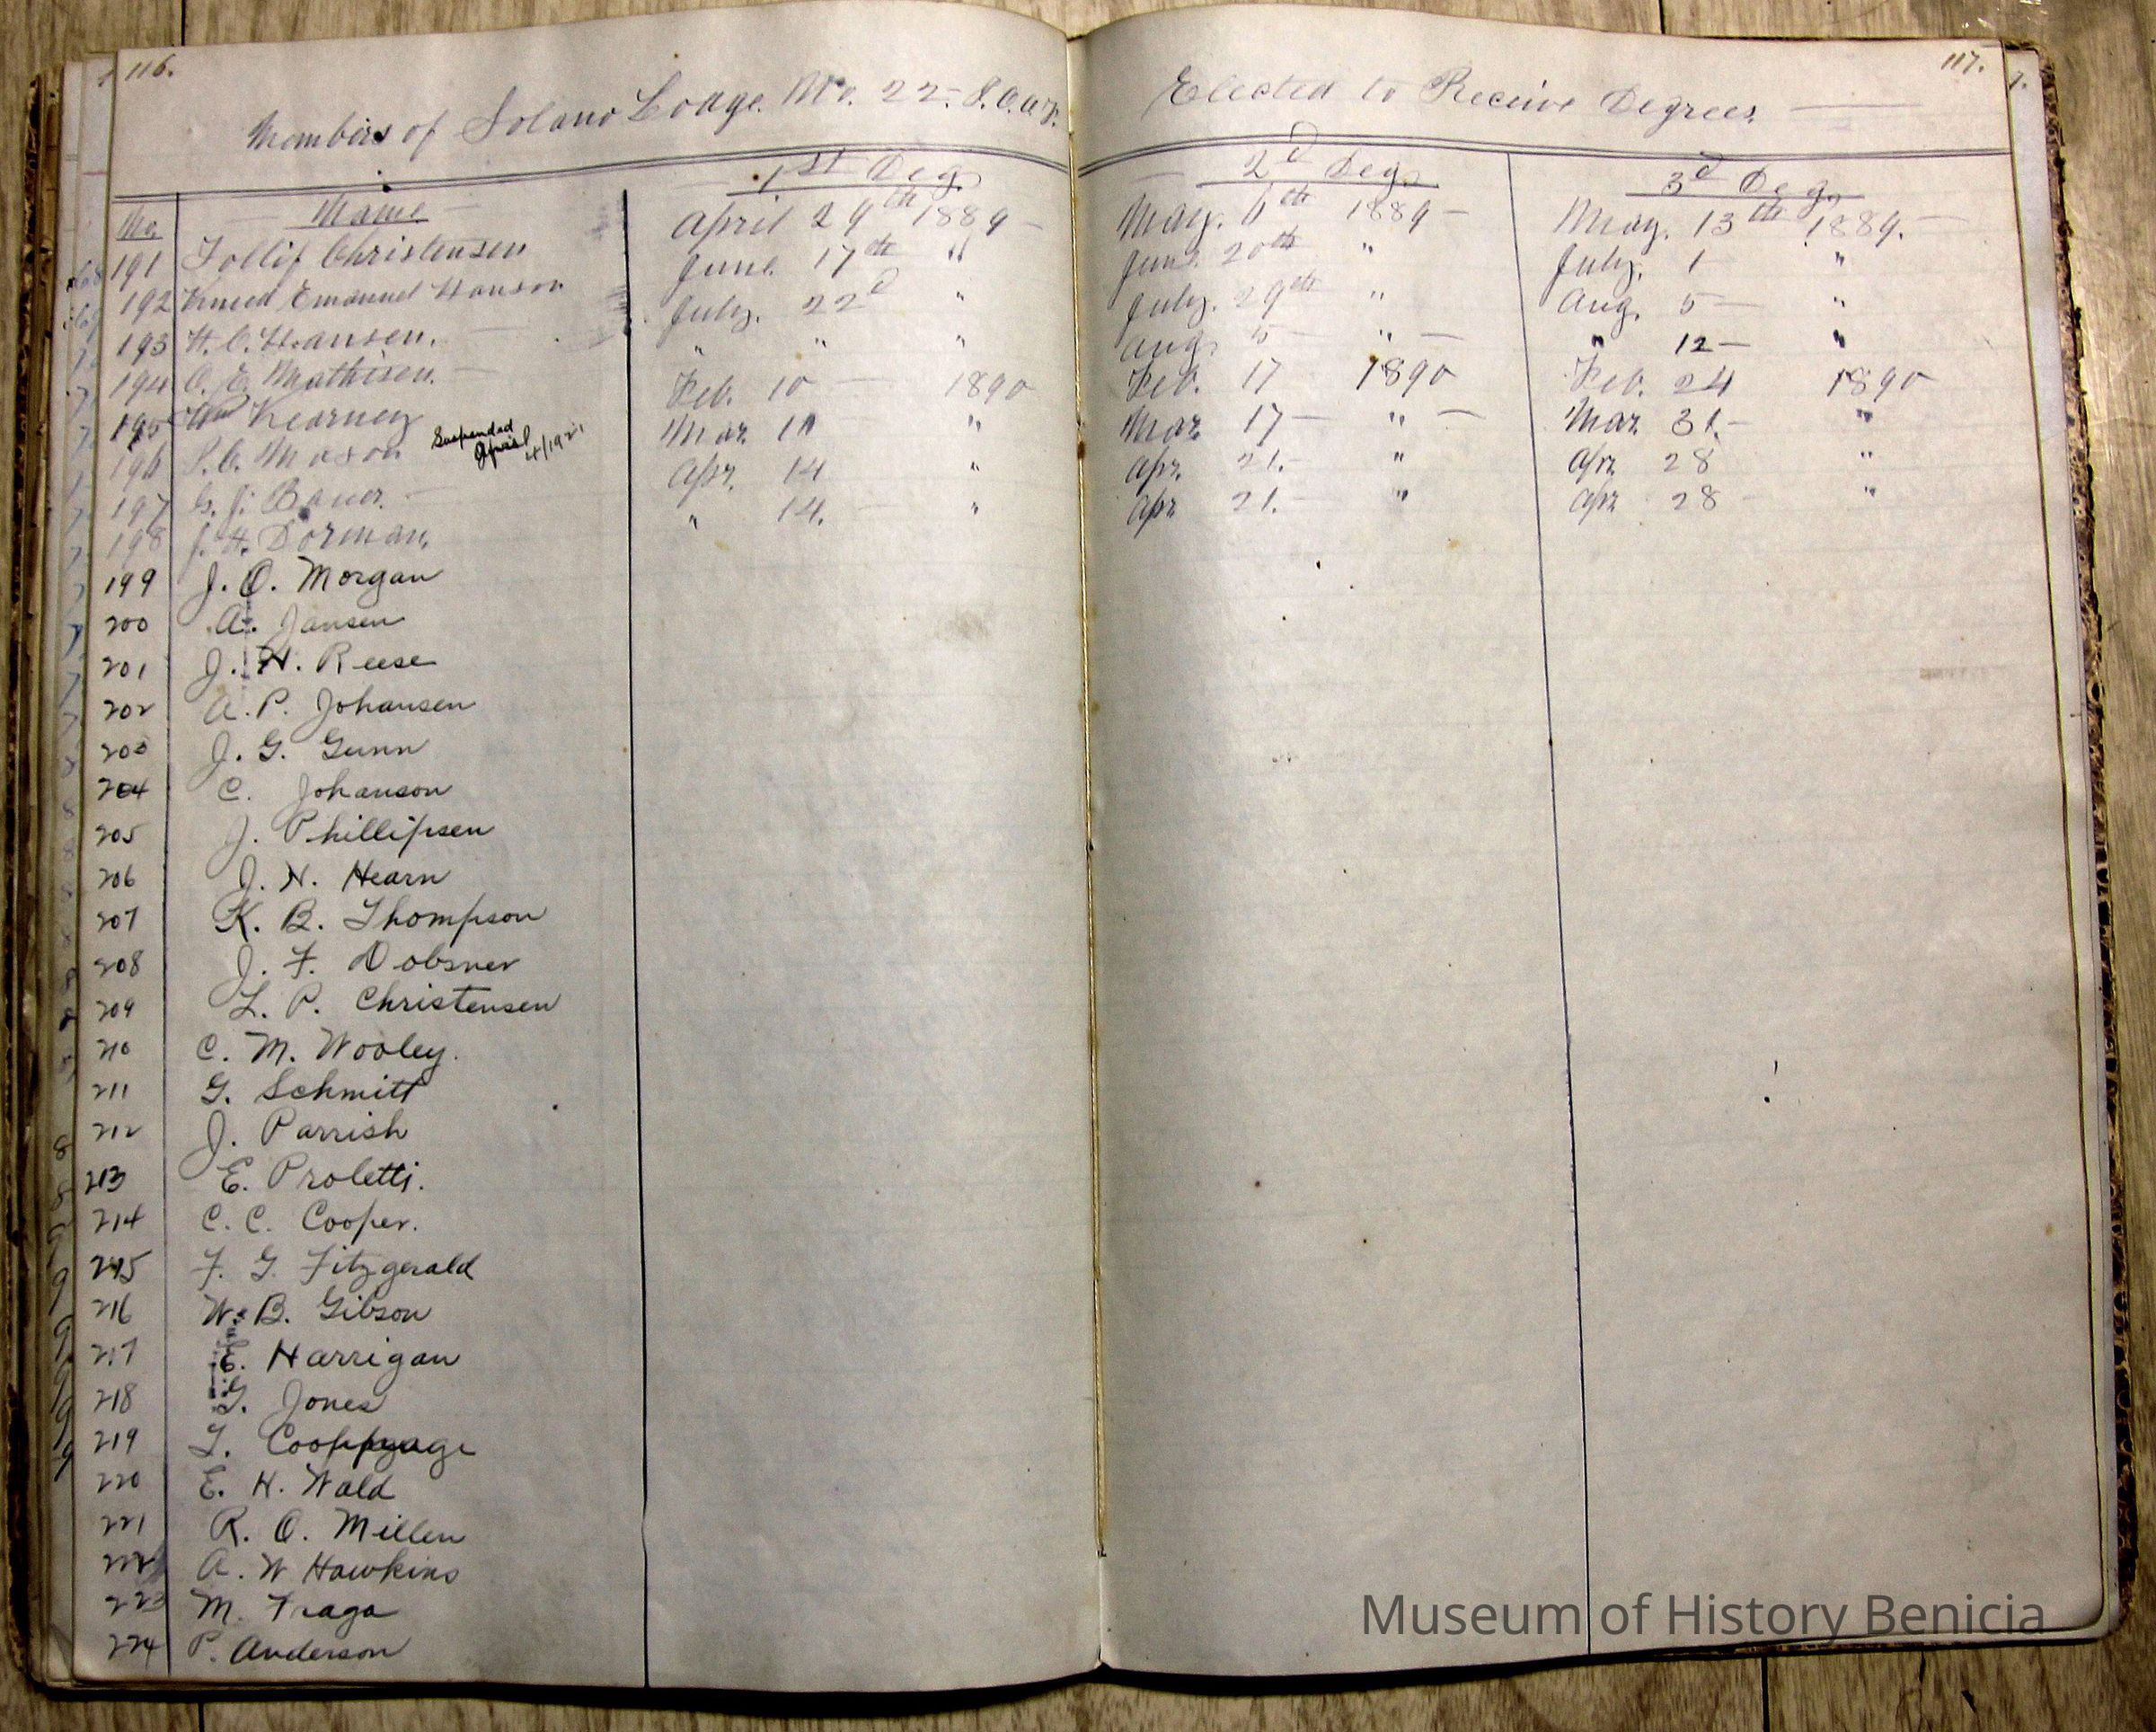 116.
Members of Solano Lodge No. 22- I.O.O.F.
No. Name 1st Deg
191 Tollif Christensen April 29th 1889 -
192 Knud Emanuel Hanson June 17th "
193 H. C. Hansen. - July. 22d "
194 O. E. Mathisen. - " " "
195 Wm Kearney Feb. 10 - 1890
196 S. C. Mason Suspended April 4/1921 Mar. 10 "
197 G. J. Bauer. - Apr. 14 "
198 J. H. Dorman. " 14. - "
199 J. O. Morgan
200 A. Jansen
201 J. H. Reese
202 A. P. Johansen
203 J. G. Gunn
204 C. Johanson
205 J. Phillipsen
206 J. N. Hearn
207 K. B. Thompson
208 J. F. Dobsner
209 L. P. Christensen
210 C. M. Wooley.
211 G. Schmitt
212 J. Parrish
213 E. Proletti.
214 C. C. Cooper.
215 F. G. Fitzgerald
216 W. B. Gibson
217 E. Harrigan
218 G. Jones
219 T.
220 E. H. Wald
221 R. O. Millen
222 A. W Hawkins
223 M. Fraga
224 P. Anderson
117.
Elected to Receive Degrees. -
2d Deg. 3d Deg.
May. 6th 1889 - May. 13th 1889. -
June 20th " July. 1 - "
July. 29th " Aug. 5 - "
Aug. 5 - " - " 12 - "
Feb. 17 1890 Feb. 24 1890 -
Mar. 17 - " - Mar. 31. - "
Apr. 21. - " Apr. 28 "
Apr 21. - " Apr. 28 - "
Museum of History Benicia